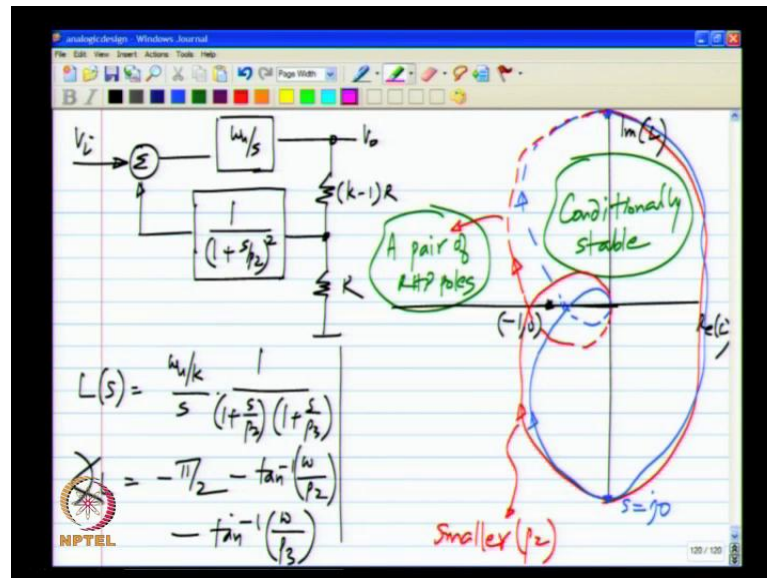 analogicdesign - Windows Journal
File Edit View Insert Actions Tools Help
Page Width
B I
Vi
Σ
ωu/s
Vo
(k-1)R
1/(1+s/p2)²
R
L(s) = (ωu/k)/s · 1/((1+s/p2)(1+s/p3))
= -π/2 - tan⁻¹(ω/p2)
- tan⁻¹(ω/p3)
Im(L)
Conditionally
stable
A pair of
RHP poles
(-1,0)
Re(L)
s=j0
Smaller (p2)
NPTEL
120 / 120